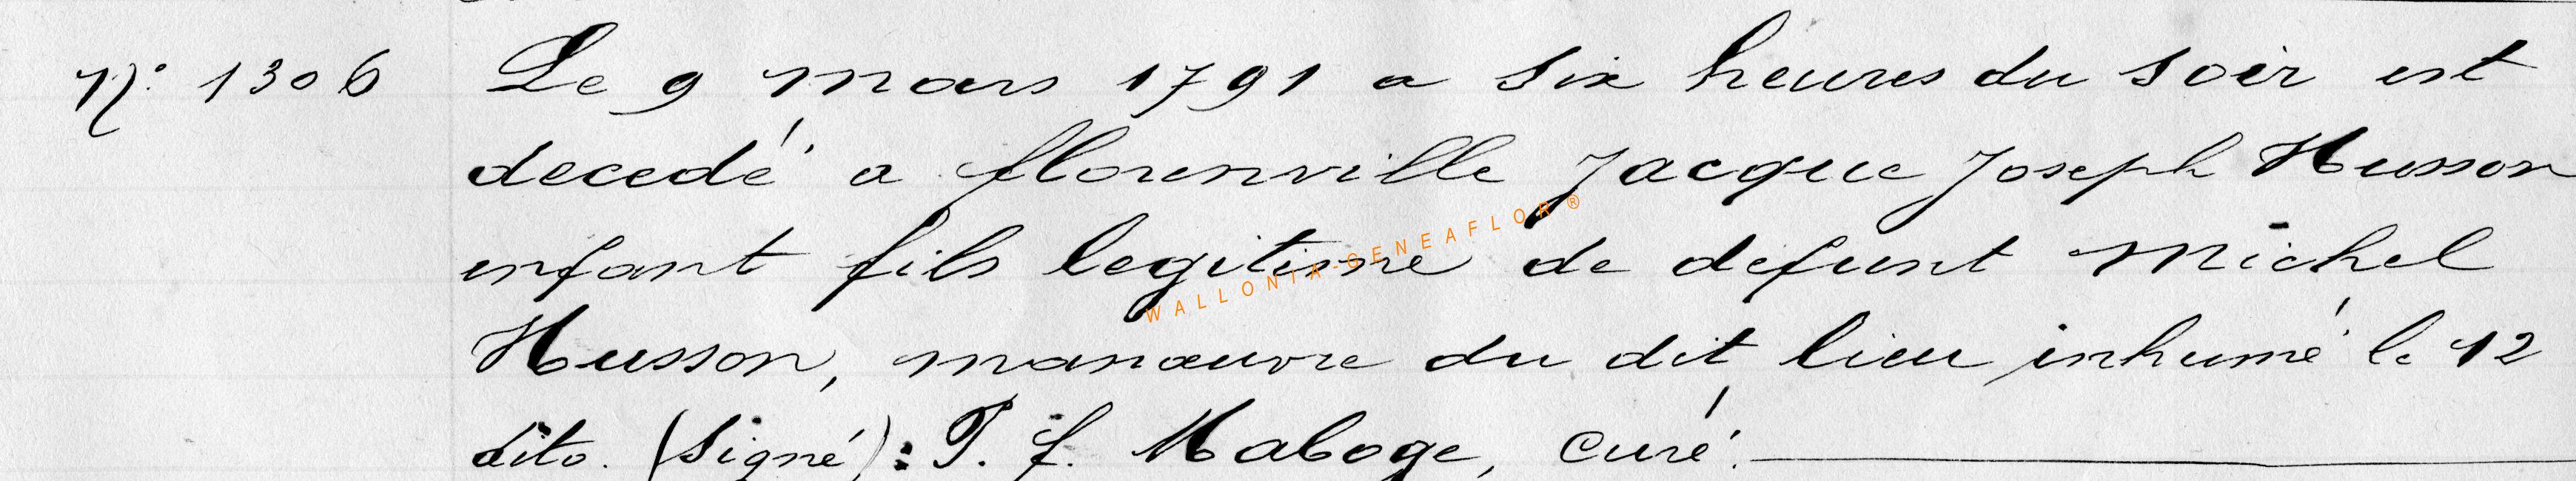 N° 1306 Le 9 mars 1791 a six heures du soir est
decedé a florenville Jacque Joseph Husson
enfant fils legitime de defunt Michel
Husson, manœuvre du dit lieu inhumé le 12
dito. (Signé): P. f. Maboge, curé.
WALLONIA-GENEAFLOR®